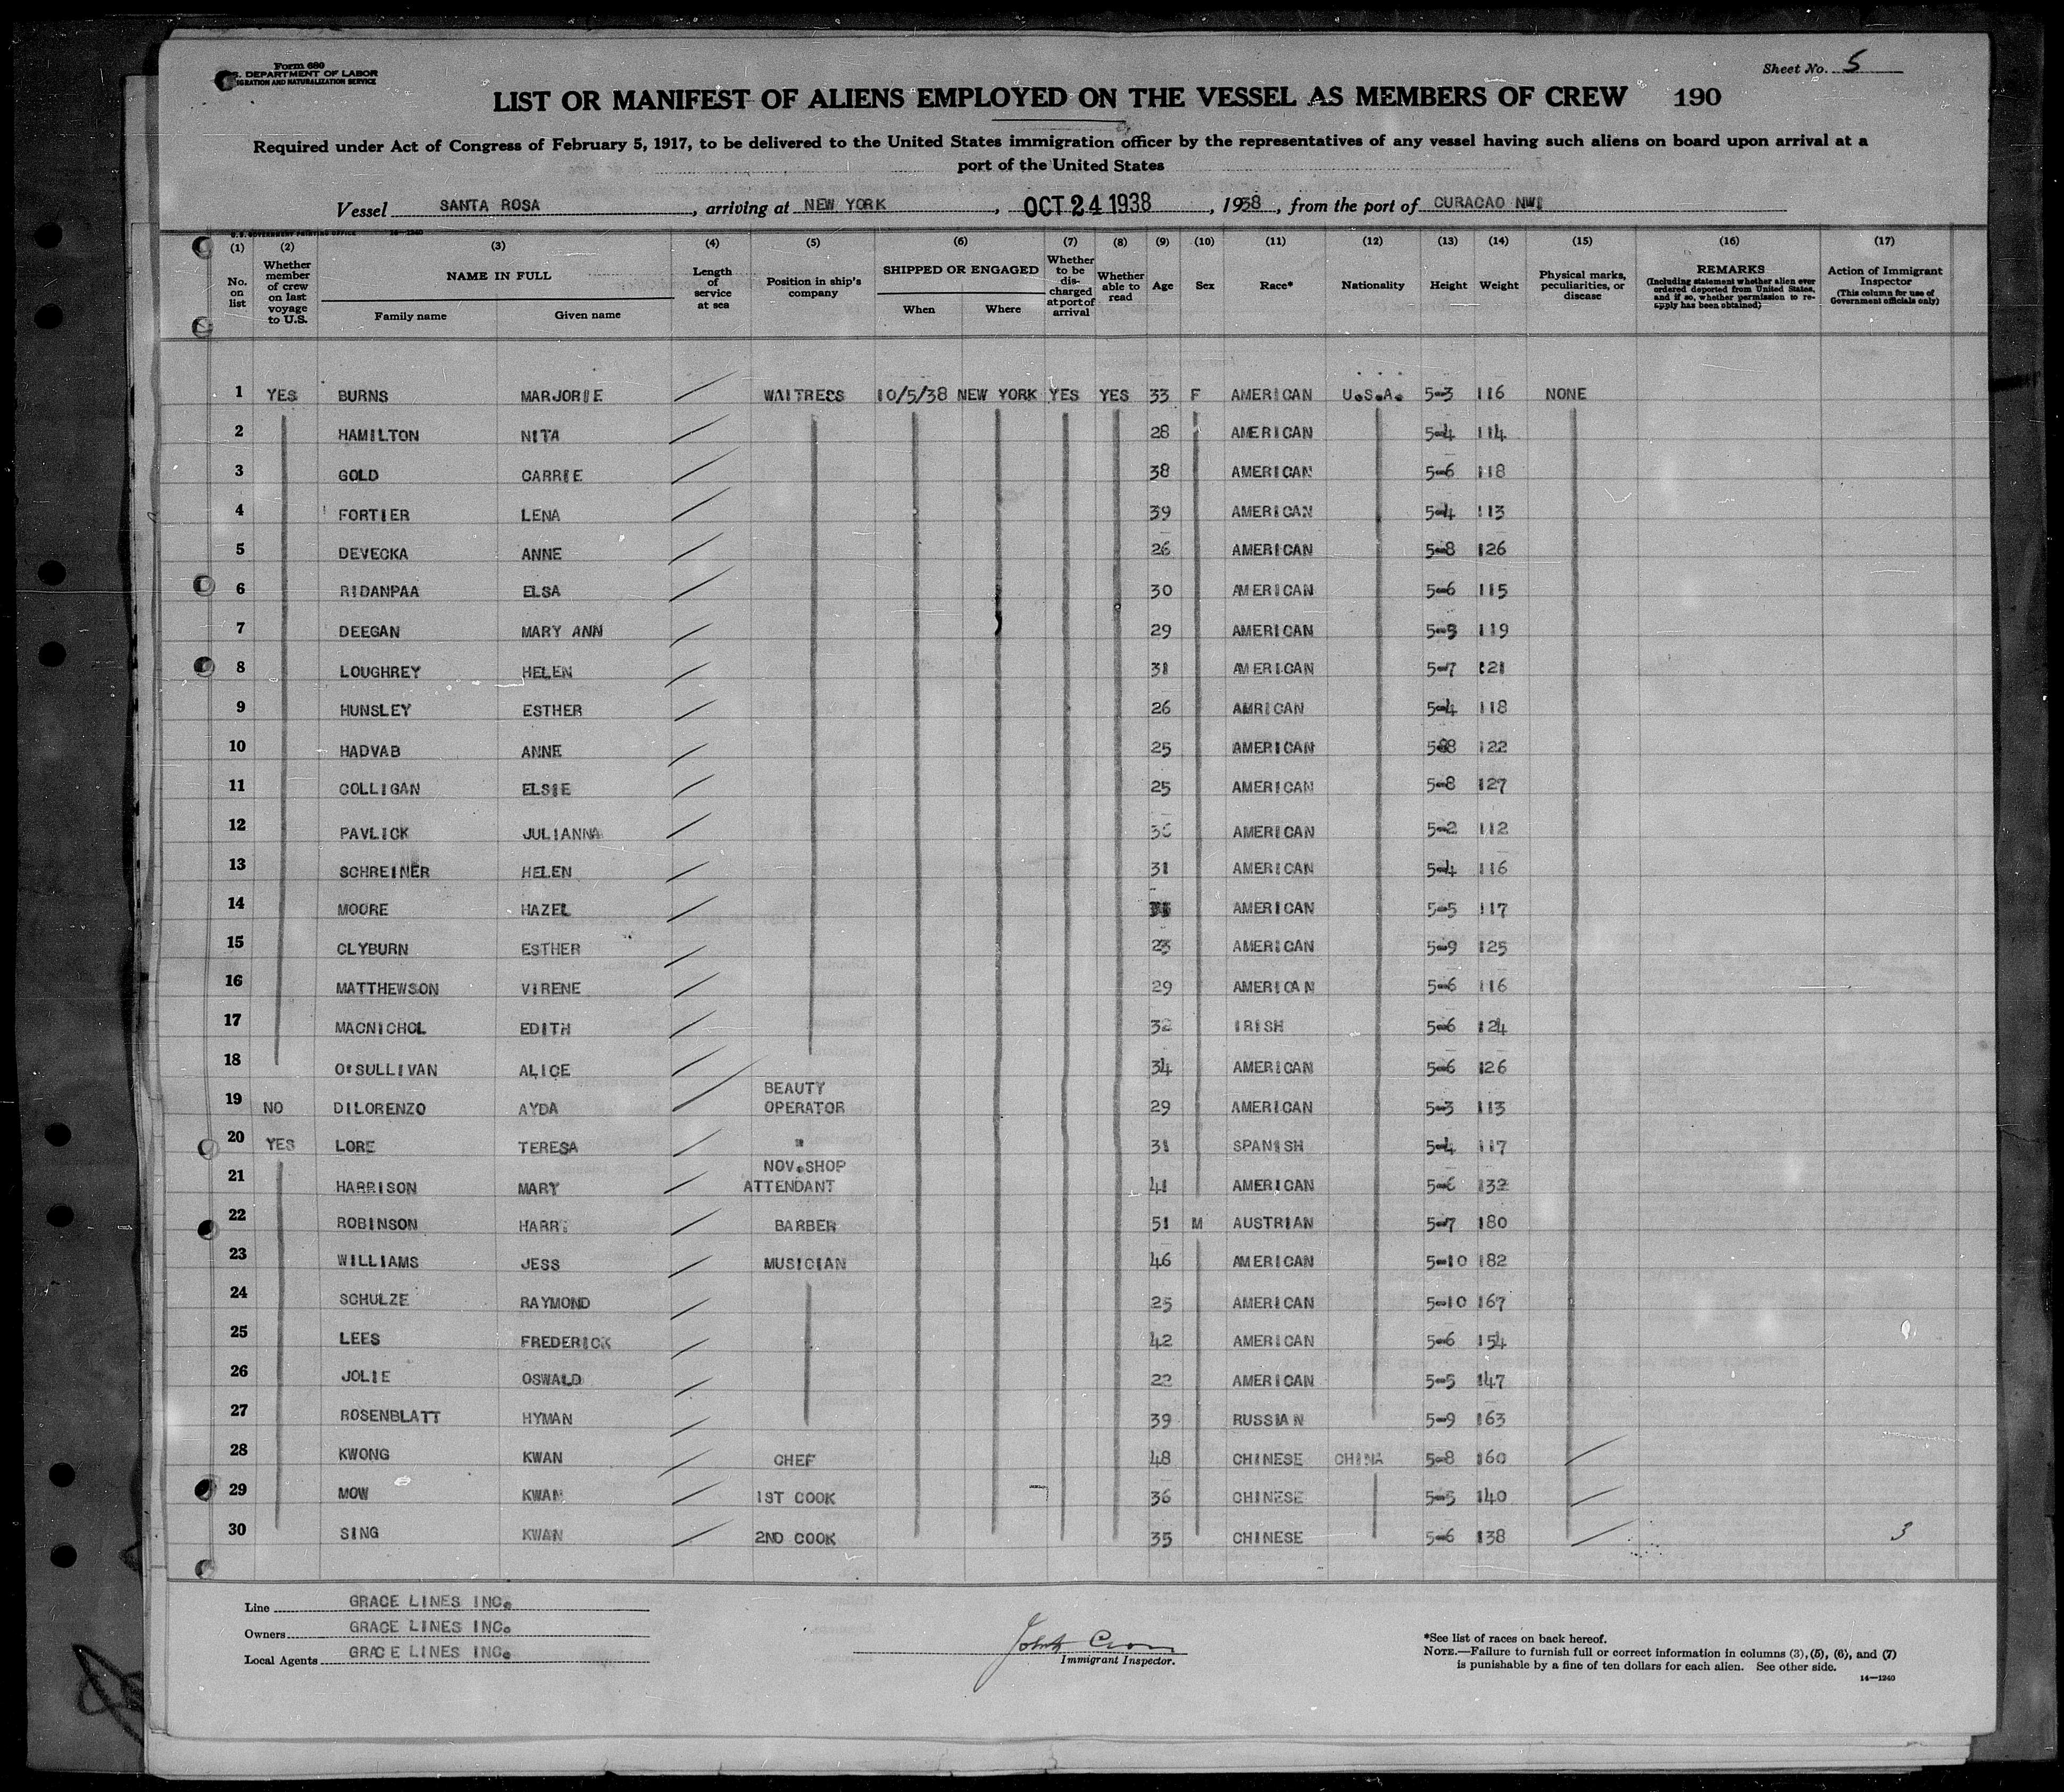 Form 680
DEPARTMENT OF LABOR
IGRATION AND NATURALIZATION SERVICE
Sheet No. 5
LIST OR MANIFEST OF ALIENS EMPLOYED ON THE VESSEL AS MEMBERS OF CREW 190
Required under Act of Congress of February 5, 1917, to be delivered to the United States immigration officer by the representatives of any vessel having such aliens on board upon arrival at a
port of the United States
Vessel SANTA ROSA, arriving at NEW YORK, OCT 24 1938, 1938, from the port of CURACAO NWI
U.S. GOVERNMENT PRINTING OFFICE 14-1240
(1) (2) (3) (4) (5) (6) (7) (8) (9) (10) (11) (12) (13) (14) (15) (16) (17)
No. on list
Whether member of crew on last voyage to U.S.
NAME IN FULL
Family name Given name
Length of service at sea
Position in ship's company
SHIPPED OR ENGAGED
When Where
Whether to be dis-charged at port of arrival
Whether able to read
Age
Sex
Race*
Nationality
Height
Weight
Physical marks, peculiarities, or disease
REMARKS
(Including statement whether alien ever ordered deported from United States, and if so, whether permission to re-apply has been obtained)
Action of Immigrant Inspector
(This column for use of Government officials only)
1 YES BURNS MARJORIE WAITRESS 10/5/38 NEW YORK YES YES 33 F AMERICAN U.S.A. 5-3 116 NONE
2 HAMILTON NITA 28 AMERICAN 5-4 114
3 GOLD CARRIE 38 AMERICAN 5-6 118
4 FORTIER LENA 39 AMERICAN 5-4 113
5 DEVECKA ANNE 26 AMERICAN 5-8 126
6 RIDANPAA ELSA 30 AMERICAN 5-6 115
7 DEEGAN MARY ANN 29 AMERICAN 119
8 LOUGHREY HELEN 31 AMERICAN 5-7 121
9 HUNSLEY ESTHER 26 AMRICAN 5-4 118
10 HADVAB ANNE 25 AMERICAN 5-8 122
11 COLLIGAN ELSIE 25 AMERICAN 5-8 127
12 PAVLICK JULIANNA AMERICAN 5-2 112
13 SCHREINER HELEN 31 AMERICAN 5-4 116
14 MOORE HAZEL AMERICAN 5-5 117
15 CLYBURN ESTHER 23 AMERICAN 5-9 125
16 MATTHEWSON VIRENE 29 AMERICAN 5-6 116
17 MACNICHOL EDITH 32 IRISH 5-6 124
18 O'SULLIVAN ALICE 34 AMERICAN 5-6 126
19 NO DILORENZO AYDA BEAUTY OPERATOR 29 AMERICAN 5-3 113
20 YES LORE TERESA " 31 SPANISH 5-4 117
21 HARRISON MARY NOV.SHOP ATTENDANT 41 AMERICAN 5-6 132
22 ROBINSON BARBER 51 M AUSTRIAN 5-7 180
23 WILLIAMS JESS MUSICIAN 46 AMERICAN 5-10 182
24 SCHULZE RAYMOND 25 AMERICAN 5-10 167
25 LEES FREDERICK 42 AMERICAN 5-6 154
26 JOLIE OSWALD 22 AMERICAN 5-5 147
27 ROSENBLATT HYMAN 39 RUSSIAN 5-9 163
28 KWONG KWAN CHEF 48 CHINESE CHINA 5-8 160
29 MOW KWAN 1ST COOK 36 CHINESE 5-5 140
30 SING KWAN 2ND COOK 35 CHINESE 5-6 138 3
Line GRACE LINES INC.
Owners GRACE LINES INC.
Local Agents GRACE LINES INC.
Immigrant Inspector.
*See list of races on back hereof.
NOTE.—Failure to furnish full or correct information in columns (3), (5), (6), and (7)
is punishable by a fine of ten dollars for each alien. See other side.
14—1240